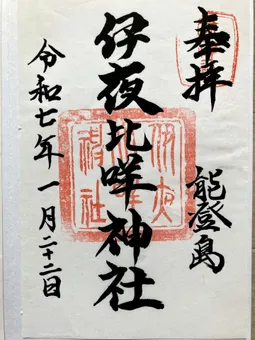 奉拝
能登島
伊夜比咩神社
伊夜
比咩
神社
令和七年一月二十二日